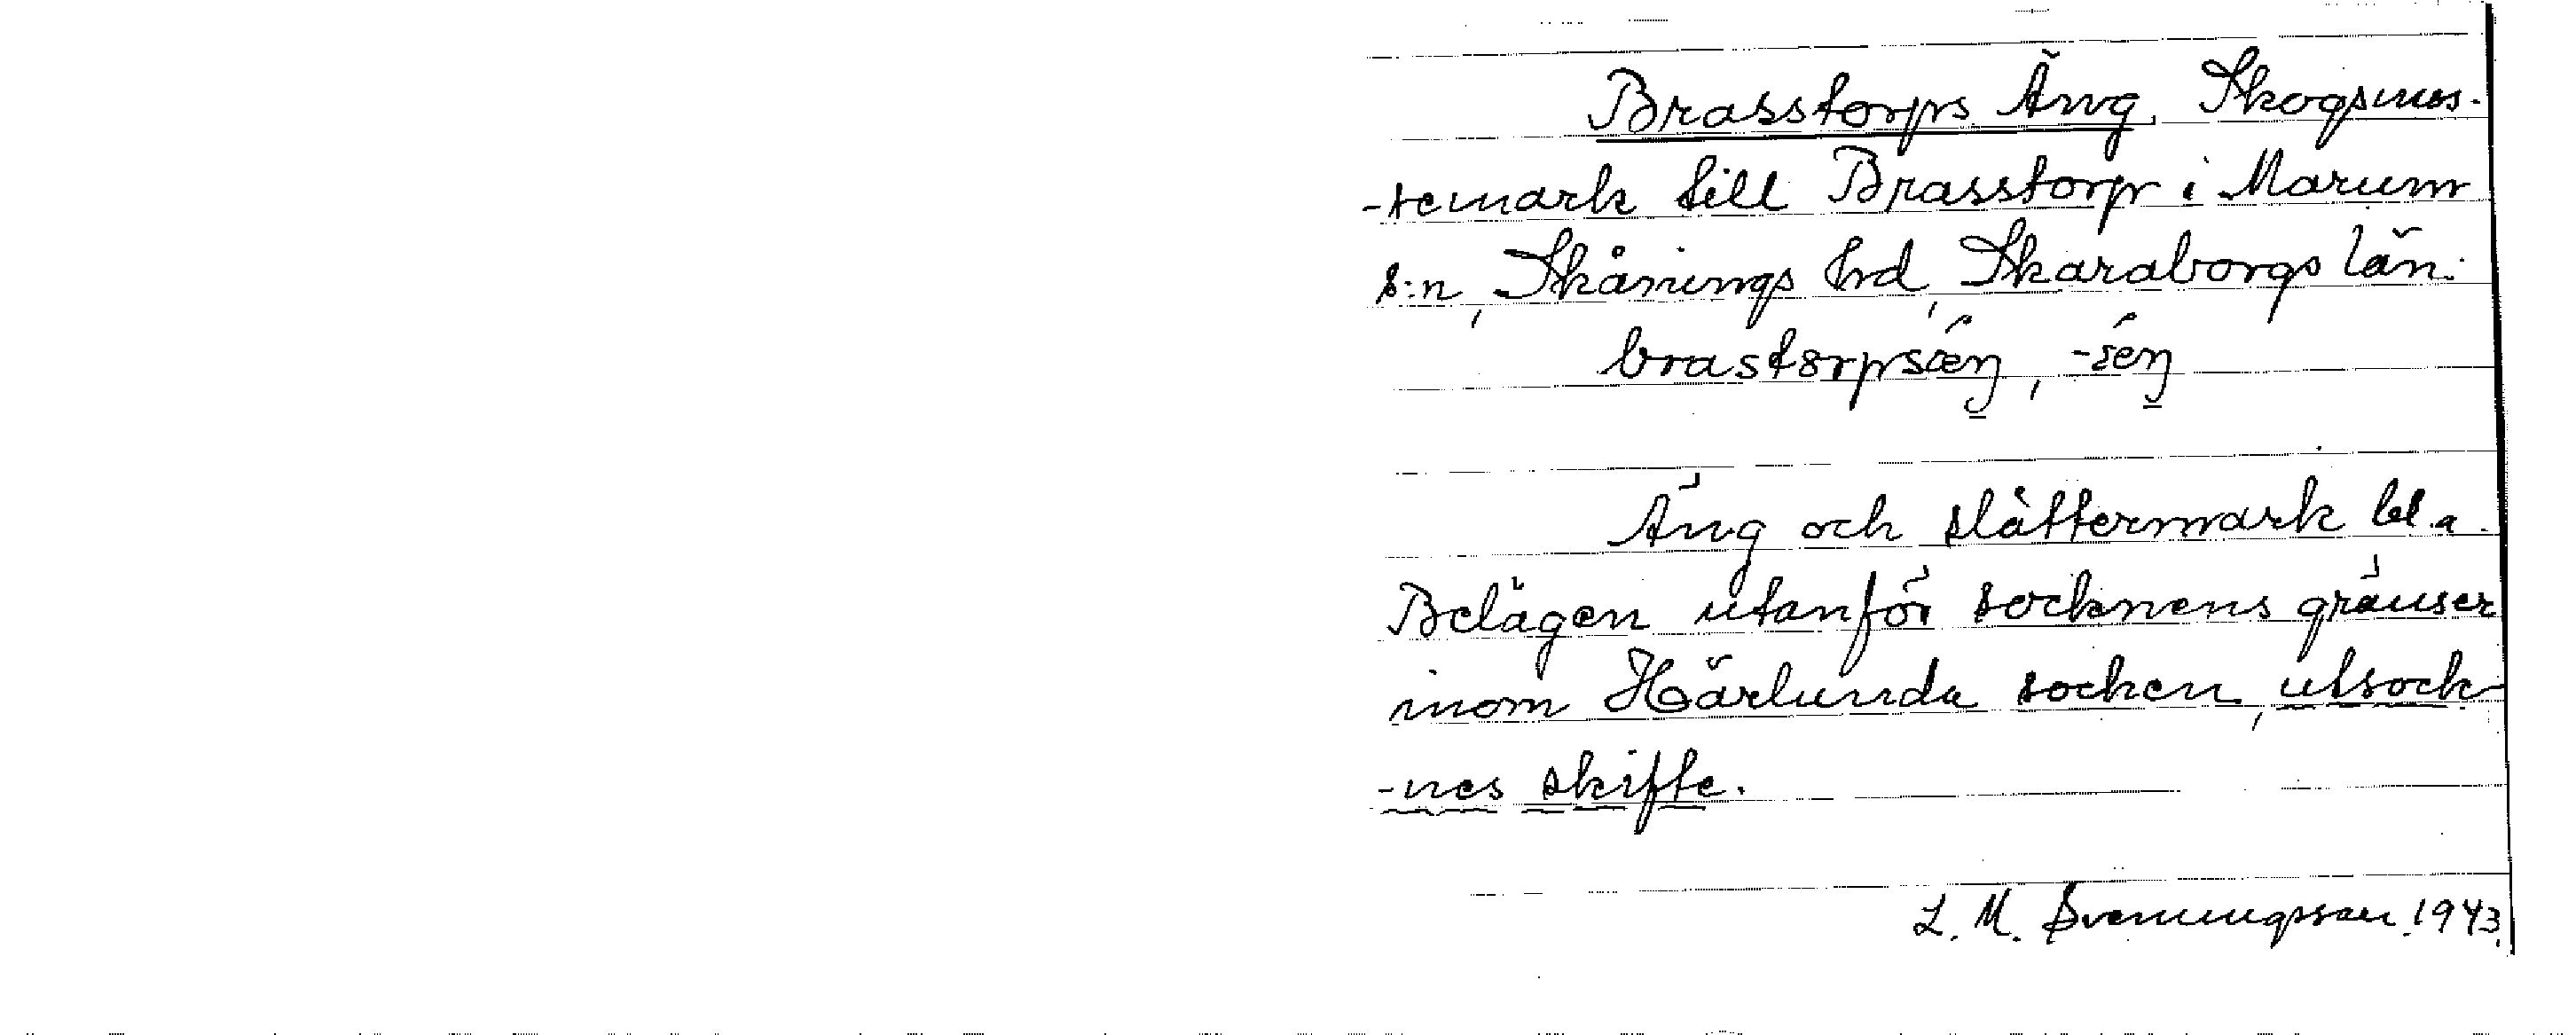 Brasstorps Äng. Skogsmos-
-semark till Brasstorp i Marum
s:n, Skånings hrd, Skaraborgs län.
brastorpsæŋ, -šeŋ
Äng och slåttermark bl.a.
Belägen utanför socknens gränser
inom Härlunda socken, utsock-
-nes skifte.
L. M. Svenungsson 1943.